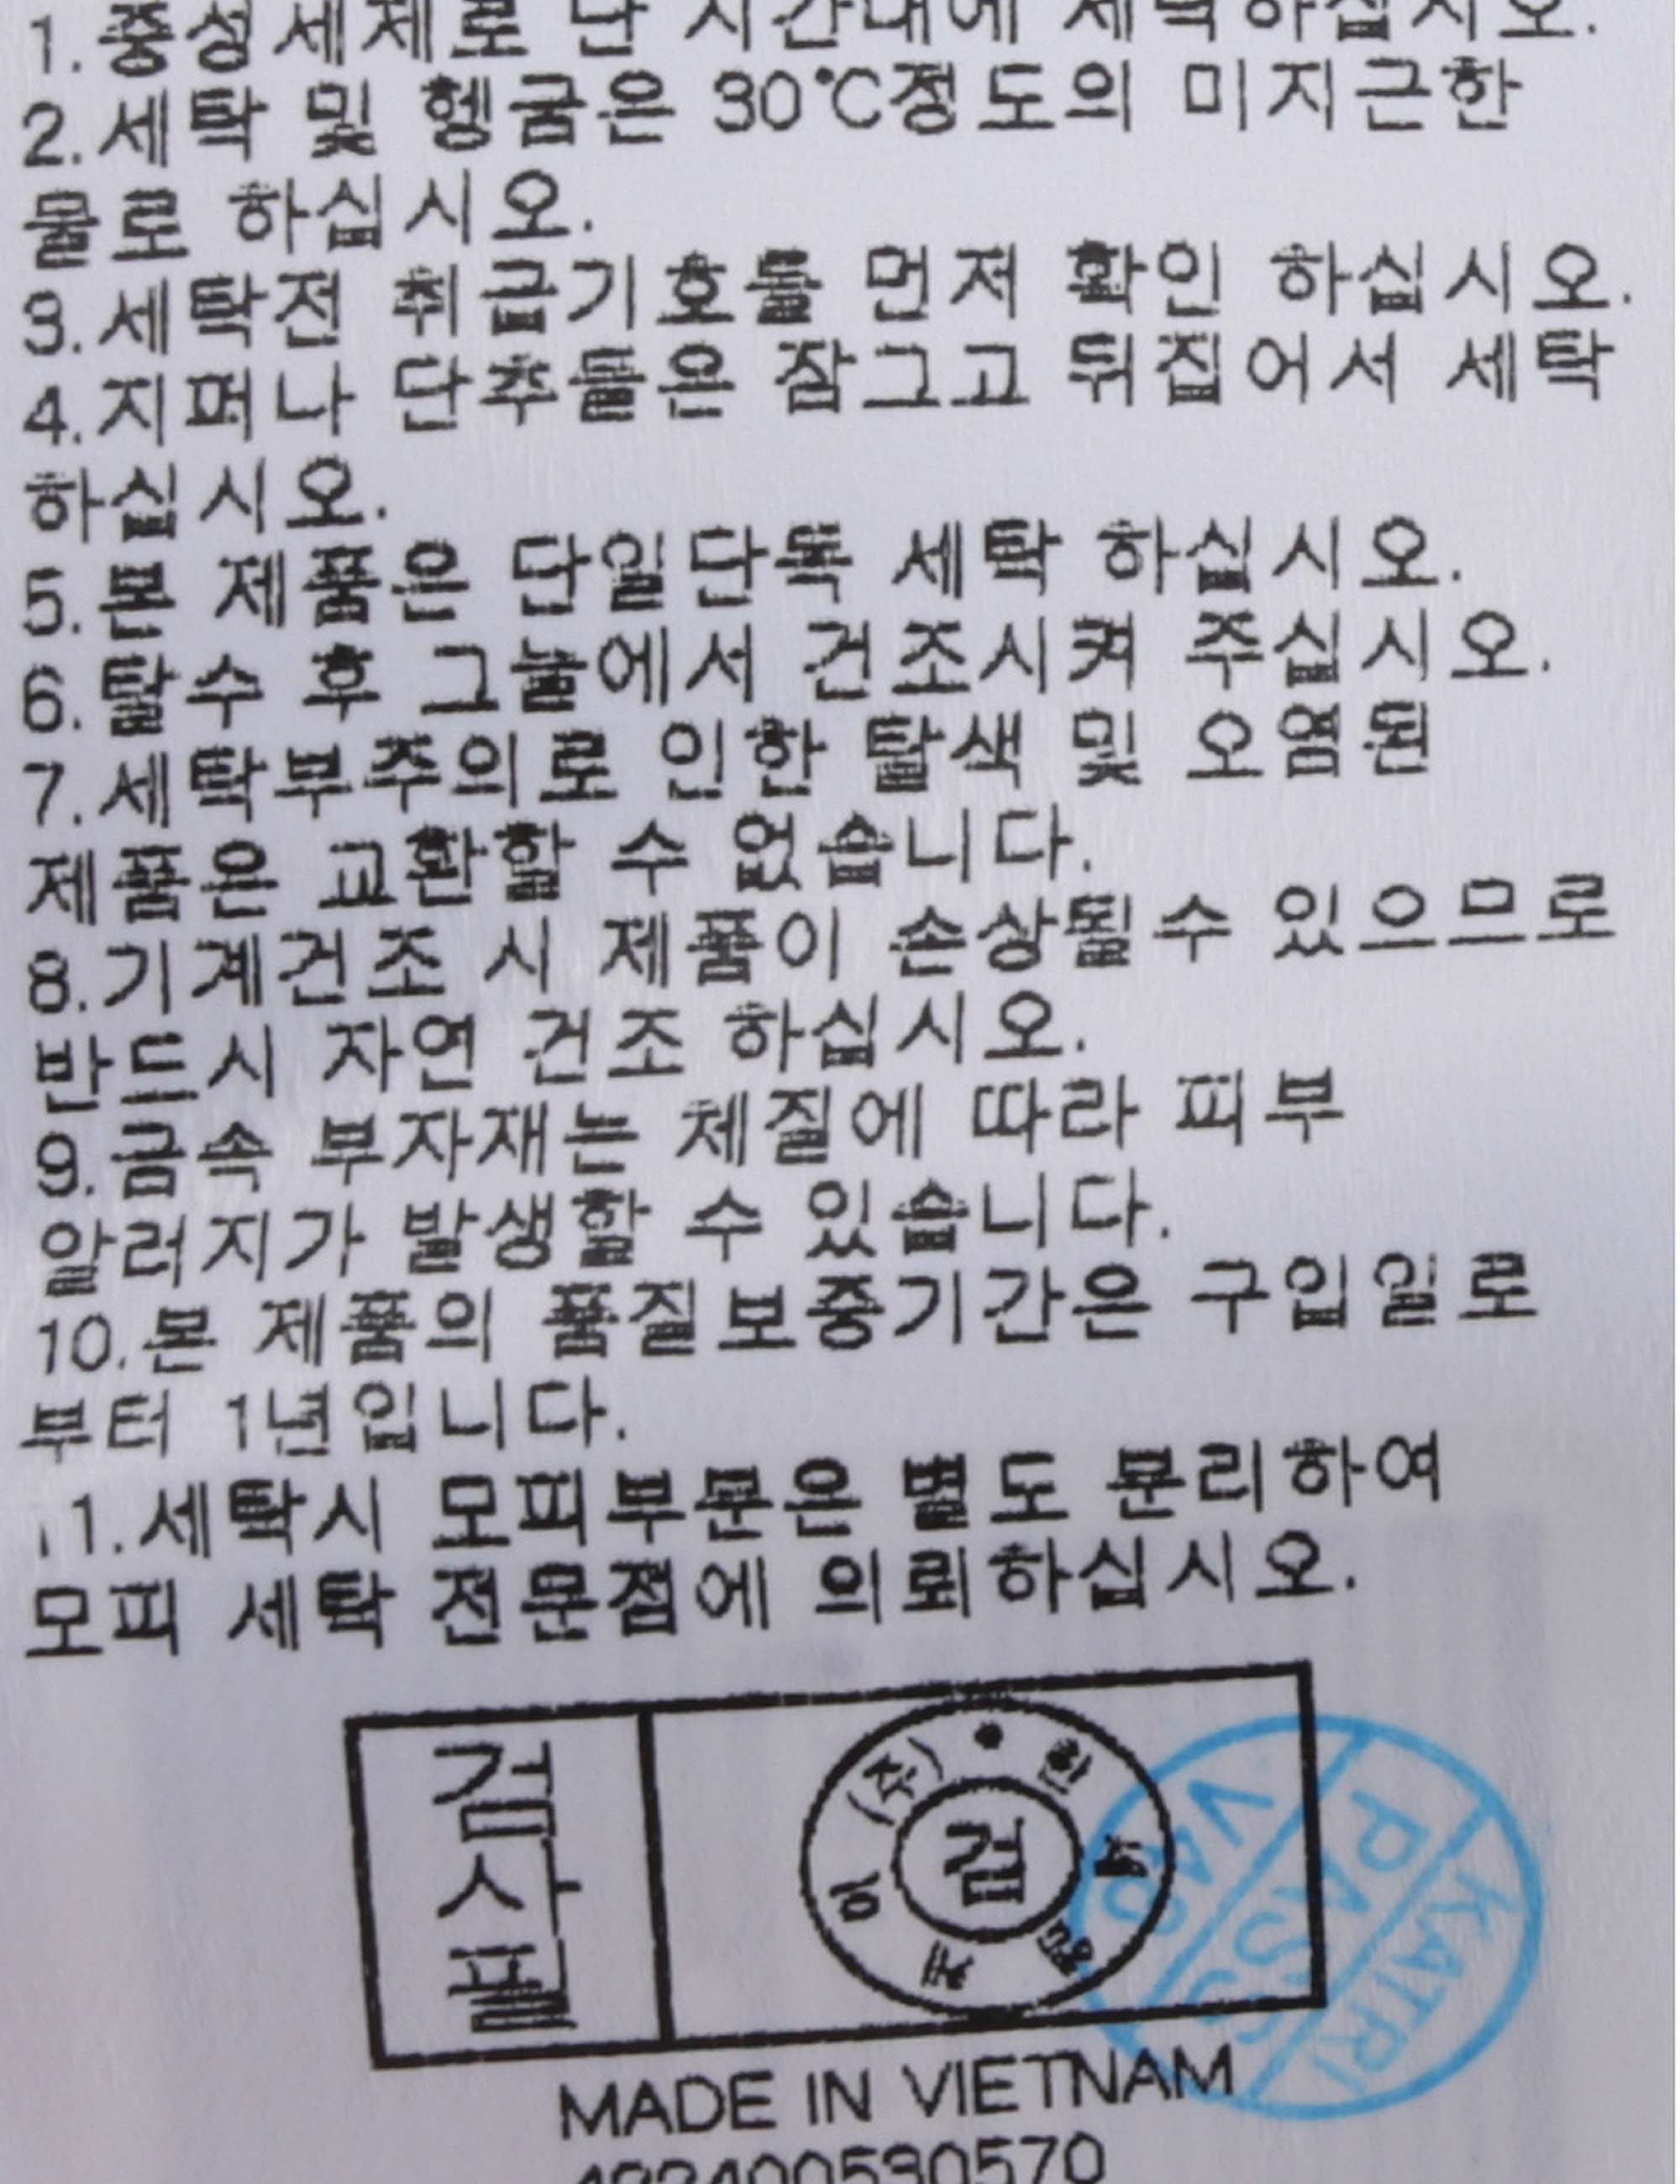 1.중성세제로 단 시간내에 세탁하십시오.
2.세탁 및 헹굼은 30℃정도의 미지근한
물로 하십시오.
3.세탁전 취급기호를 먼저 확인 하십시오.
4.지퍼나 단추들은 잠그고 뒤집어서 세탁
하십시오.
5.본 제품은 단일단독 세탁 하십시오.
6.탈수 후 그늘에서 건조시켜 주십시오.
7.세탁부주의로 인한 탈색 및 오염된
제품은 교환할 수 없습니다.
8.기계건조 시 제품이 손상될수 있으므로
반드시 자연 건조 하십시오.
9.금속 부자재는 체질에 따라 피부
알러지가 발생할 수 있습니다.
10.본 제품의 품질보증기간은 구입일로
부터 1년입니다.
11.세탁시 모피부분은 별도 분리하여
모피 세탁 전문점에 의뢰하십시오.
검사필
(주)한
검
KATRI
PASS
MADE IN VIETNAM